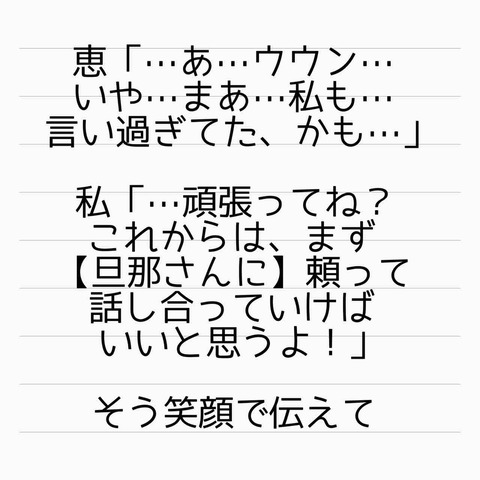 恵「…あ…ウウン…
いや…まあ…私も…
言い過ぎてた、かも…」
私「…頑張ってね？
これからは、まず
【旦那さんに】頼って
話し合っていけば
いいと思うよ！」
そう笑顔で伝えて